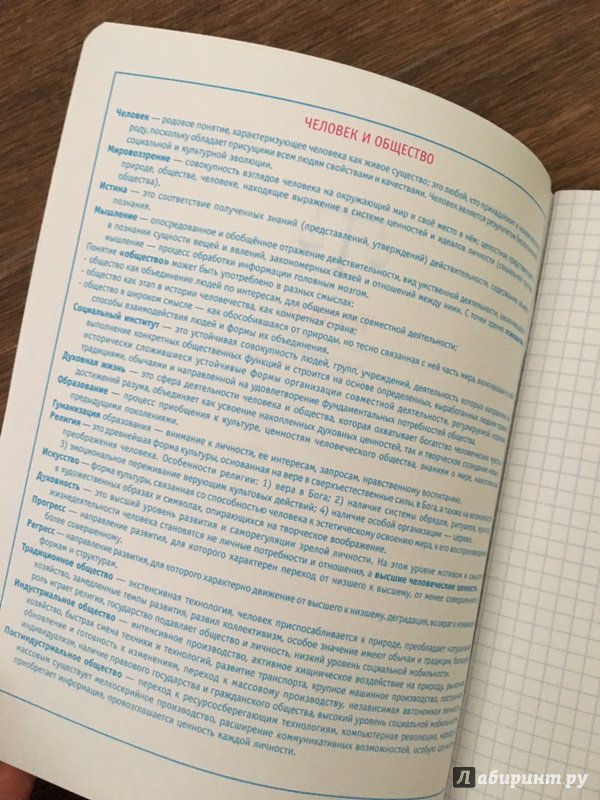 ЧЕЛОВЕК И ОБЩЕСТВО
Человек — родовое понятие, характеризующее человека как живое существо; это любой, кто принадлежит к человеческому
роду, поскольку обладает присущими всем людям свойствами и качествами. Человек является результатом биологической,
социальной и культурной эволюции.
Мировоззрение — совокупность взглядов человека на окружающий мир и своё место в нём; целостное представление о
природе, обществе, человеке, находящее выражение в системе ценностей и идеалов личности (социальной группы,
общества).
Истина — это соответствие полученных знаний (представлений, утверждений) действительности, содержание
познания.
Мышление — опосредованное и обобщённое отражение действительности, вид умственной деятельности, заключающейся
в познании сущности вещей и явлений, закономерных связей и отношений между ними. С точки зрения
мышление — процесс обработки информации головным мозгом.
Понятие «общество» может быть употреблено в разных смыслах:
- общество как объединение людей по интересам, для общения или совместной деятельности;
- общество как этап в истории человечества, как конкретная страна;
- общество в широком смысле — как обособившаяся от природы, но тесно связанная с ней часть мира, включающая в себя
способы взаимодействия людей и формы их объединения.
Социальный институт — это устойчивая совокупность людей, групп, учреждений, деятельность которых направлена на
выполнение конкретных общественных функций и строится на основе определенных, выработанных людьми
исторически сложившиеся устойчивые формы организации совместной деятельности, регулируемой нормами,
традициями, обычаями и направленной на удовлетворение фундаментальных потребностей общества.
Духовная жизнь — это сфера деятельности человека и общества, которая охватывает богатство человеческих чувств и
достижений разума, объединяет как усвоение накопленных духовных ценностей, так и творческое созидание новых.
Образование — процесс приобщения к культуре, ценностям человеческого общества, знаниям о мире, накопленным
предыдущими поколениями.
Гуманизация образования — внимание к личности, ее интересам, запросам, нравственному воспитанию.
Религия — это древнейшая форма культуры, основанная на вере в сверхъестественные силы, в Бога, а также на возможность
преображения человека. Особенности религии: 1) вера в Бога; 2) наличие системы обрядов, ритуалов,
3) эмоциональное переживание верующим культовых действий; 4) наличие особой организации — церкви.
Искусство — форма культуры, связанная со способностью человека к эстетическому освоению мира, к его воспроизведению
в художественных образах и символах, опирающихся на творческое воображение.
Духовность — это высший уровень развития и саморегуляции зрелой личности. На этом уровне мотивом и смыслом
жизнедеятельности человека становятся не личные потребности и отношения, а высшие человеческие ценности.
Прогресс — направление развития, для которого характерен переход от низшего к высшему, от менее совершенного к
более совершенному.
Регресс — направление развития, для которого характерно движение от высшего к низшему, деградация, возврат к изжившим
формам и структурам.
Традиционное общество — экстенсивная технология, человек приспосабливается к природе, преобладает натуральное
хозяйство, замедленные темпы развития, развил коллективизм, особое значение имеют обычаи и традиции, большую
роль играет религия, государство подавляет общество и личность, низкий уровень социальной мобильности.
Индустриальное общество — интенсивное производство, активное хищническое воздействие на природу, рыночное
хозяйство, быстрая смена техники и технологий, развитие транспорта, крупное машинное производство, постоянное
обновление и готовность к изменениям, переход к массовому производству, независимая автономная личность,
индивидуализм, наличие правового государства и гражданского общества, высокий уровень социальной мобильности.
Постиндустриальное общество — переход к ресурсосберегающим технологиям, компьютерная революция, наряду с
массовым существует мелкосерийное производство, расширение коммуникативных возможностей, особую ценность
приобретает информация, провозглашается ценность каждой личности.
Лабиринт.ру